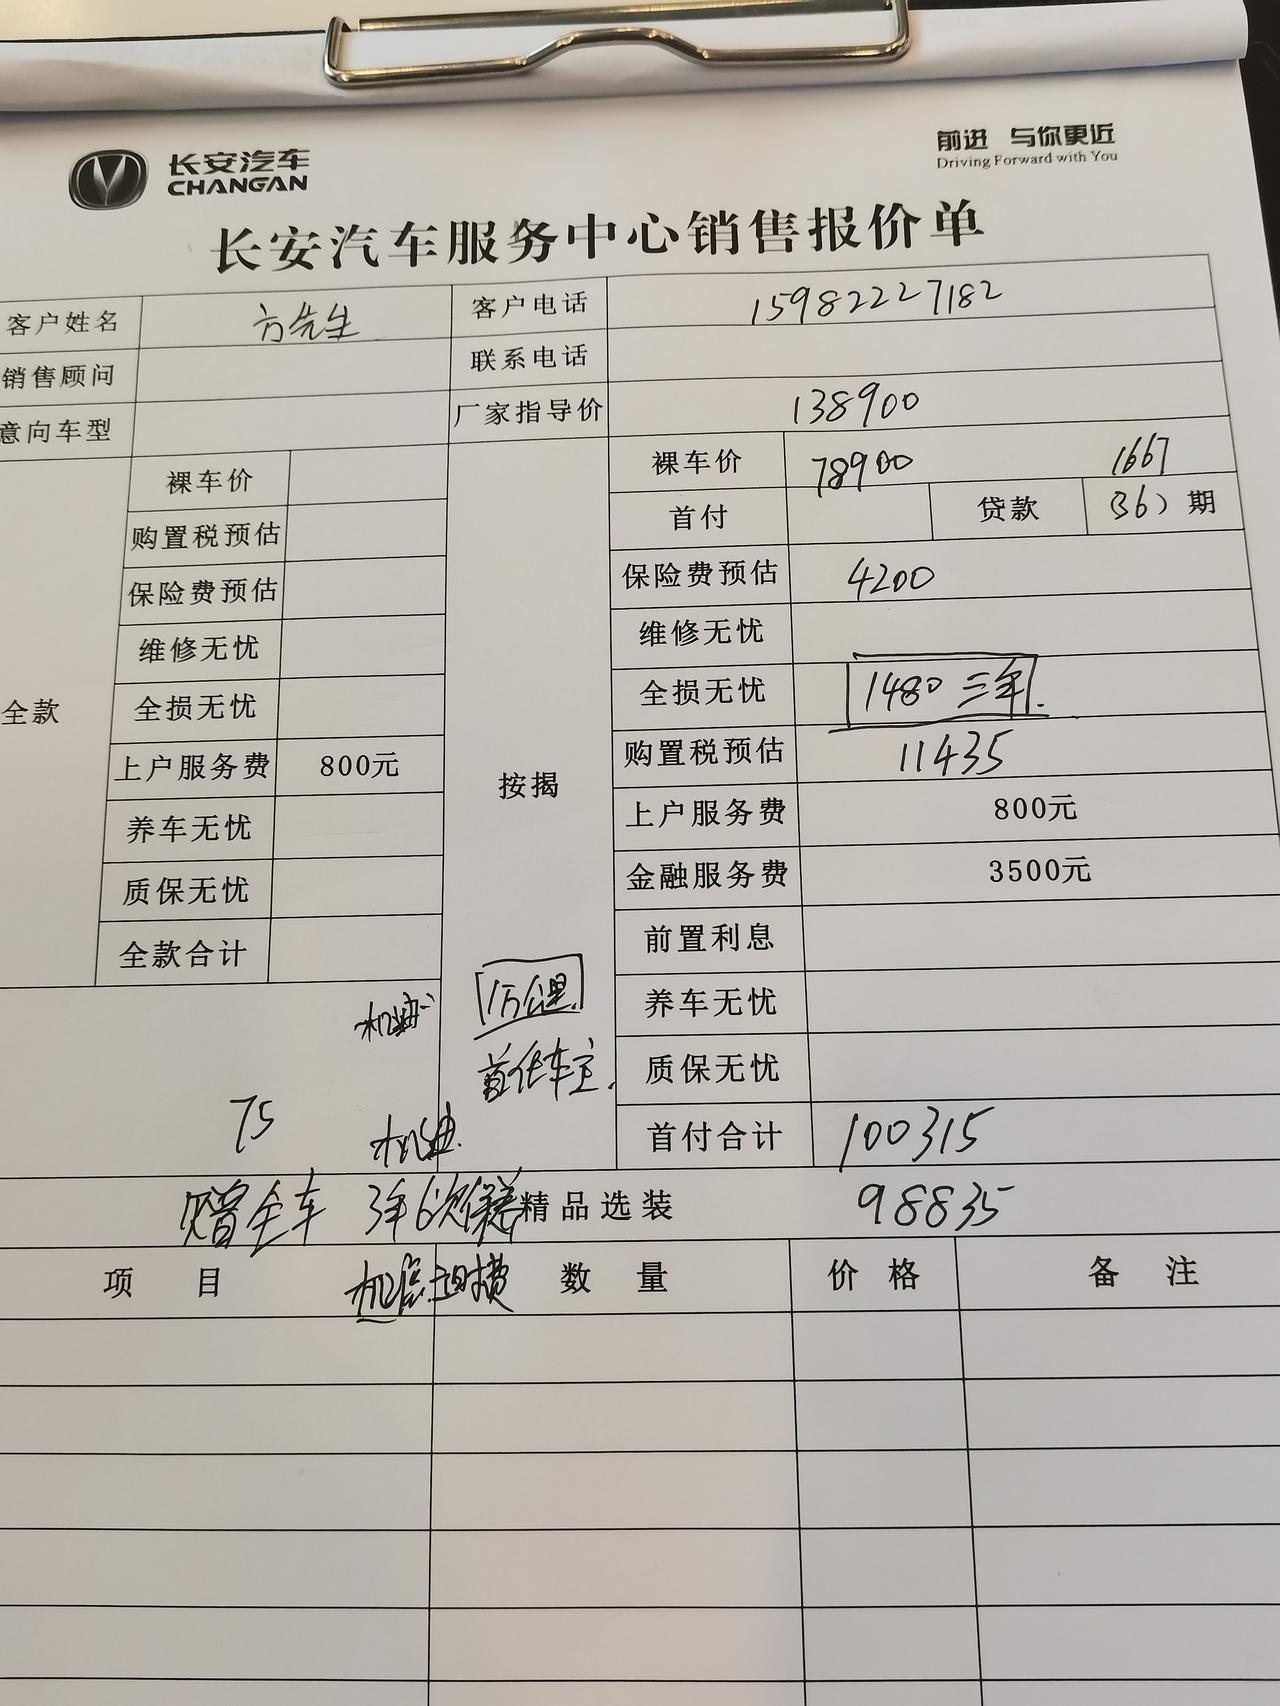 长安汽车
CHANGAN
前进 与你更近
Driving Forward with You
长安汽车服务中心销售报价单
客户姓名 方先生 客户电话 15982227182
销售顾问 联系电话
意向车型 厂家指导价 138900
全款
裸车价
购置税预估
保险费预估
维修无忧
全损无忧
上户服务费 800元
养车无忧
质保无忧
全款合计
按揭
裸车价 78900 1667
首付 贷款 (36)期
保险费预估 4200
维修无忧
全损无忧 1480 三年.
购置税预估 11435
上户服务费 800元
金融服务费 3500元
前置利息
养车无忧
质保无忧
首付合计 100315
机油
1万公里
首任车主.
75 机油.
赠全车 3年6次保养 精品选装 98835
项目 数量 价格 备注
工时费